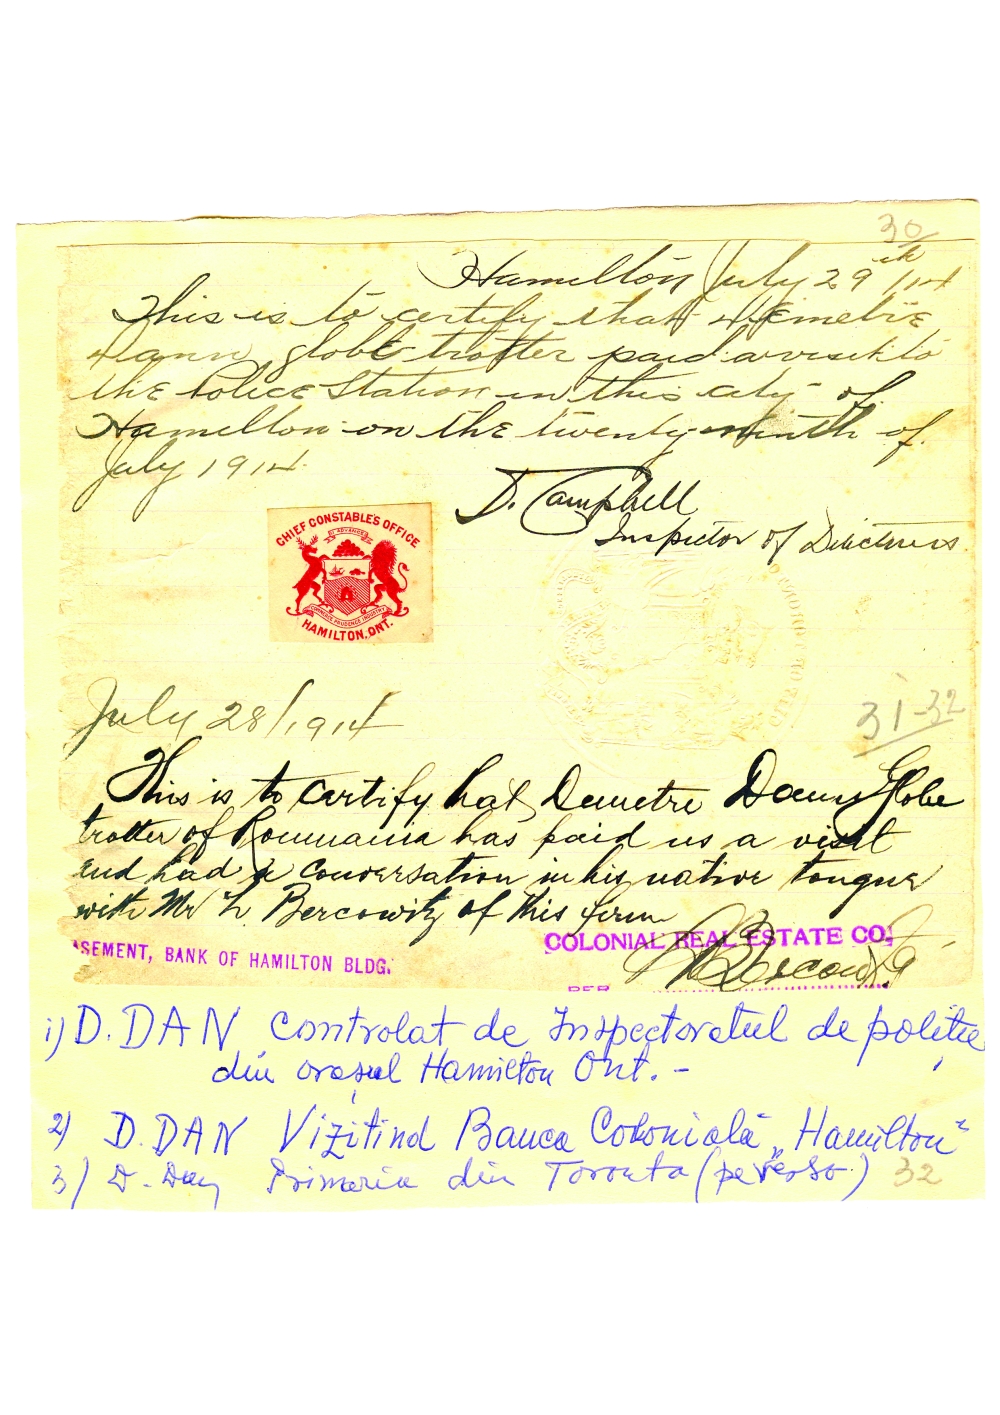 30
Hamilton July 29th/14
This is to certify that Demetrie
Dann, globe trotter paid a visit to
the Police Station in this city of
Hamilton on the twenty ninth of
July 1914.
D. Campbell
Inspector of Detectives
CHIEF CONSTABLE'S OFFICE
ADVANCE
COMMERCE PRUDENCE INDUSTRY
HAMILTON, ONT.
July 28/1914
31-32
This is to certify that Demetre Dann Globe
trotter of Roumania has paid us a visit
and had a conversation in his native tongue
with Mr L. Bercowitz of this firm
ASEMENT, BANK OF HAMILTON BLDG.
COLONIAL REAL ESTATE CO.
PER
L Bercowitz
1) D. DAN Controlat de Inspectoratul de politie
din orașul Hamilton Ont. -
2) D. DAN Vizitînd Banca Colonială „Hamilton"
3) D. Dan Primaria din Toronto (pe verso) 32